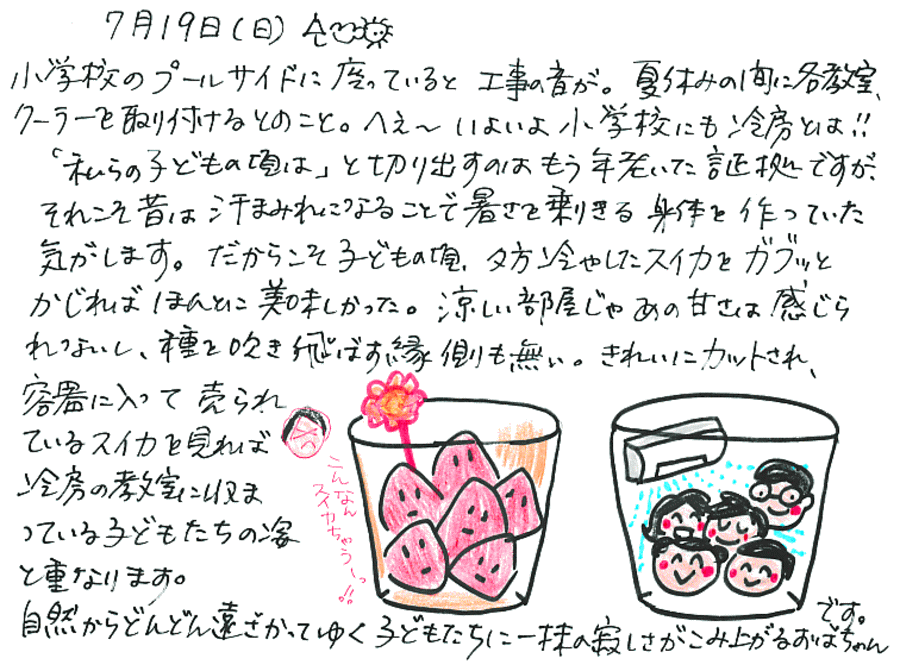 7月19日(日)
小学校のプールサイドに座っていると工事の音が。夏休みの間に各教室、
クーラーを取り付けるとのこと。へえ〜いよいよ小学校にも冷房とは!!
「私らの子どもの頃は」と切り出すのはもう年老いた証拠ですが、
それこそ昔は汗まみれになることで暑さを乗りきる身体を作っていた
気がします。だからこそ子どもの頃、夕方冷やしたスイカをガブッと
かじればほんとに美味しかった。涼しい部屋じゃあの甘さは感じら
れないし、種を吹き飛ばす縁側も無い。きれいにカットされ、
容器に入って売られ
ているスイカを見れば
冷房の教室に収ま
っている子どもたちの姿
と重なります。
自然からどんどん遠ざかってゆく子どもたちに一抹の寂しさがこみ上がるおばちゃん
です。
こんなん
スイカちゃうーっ!!